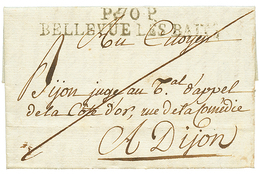 P.70.P.
BELLEVUE LES BAINS
Au Citoyen
Dijon juge au T.al d'appel
de la Côte d'or, rue de la Comédie
A Dijon